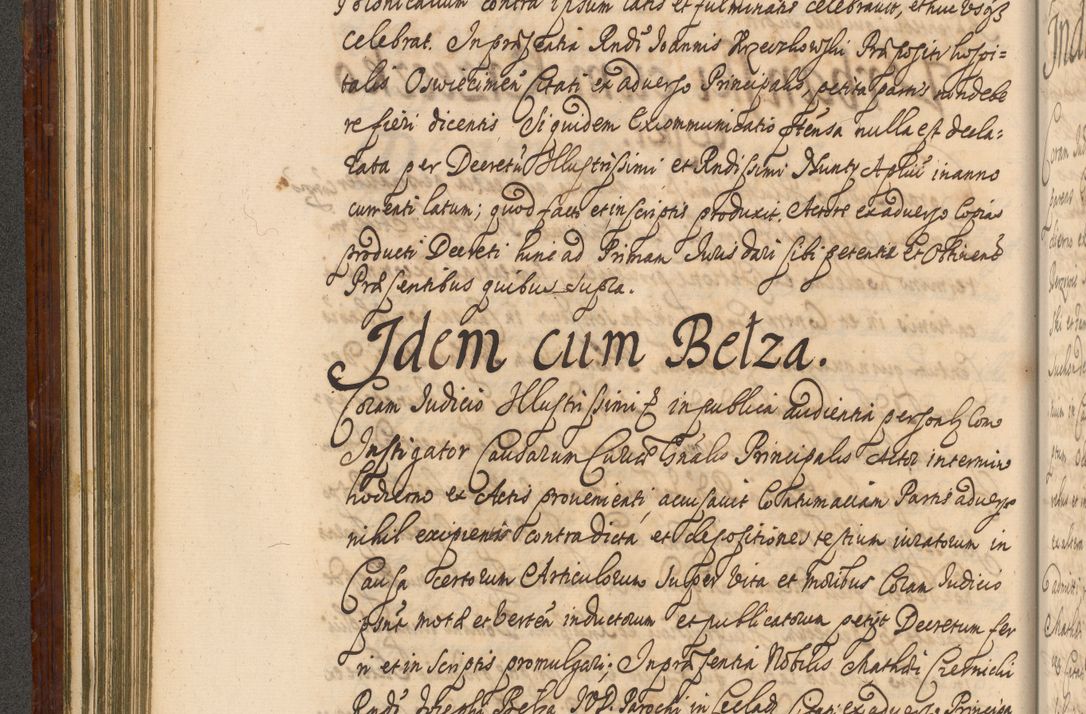 celebrat. In præsentia Rndi Ioannis Krzeczkowski Præpositi hospi=
talis Oswiecimen Citati ex adverso Principalis, petita partis non debe
re fieri dicentis Siquidem Excommunicatio extensa nulla est decla=
rata per Decretũ Illustrissimi et Rndissimi Nuntÿ Aplici in anno
currenti latum; quod facti et in scriptis produxit. Actore ex adverso Copias
producti Decreti hinc ad Primam Iuris dari sibi petente et Obtinenẽ
Præsentibus quibus supra.
Idem cum Bełza.
Coram Iudicio Illustrissimi in publica audientia personlr Com
Instigator Causarum Curiæ Gñalis Principalis Actor in termino
hodierno ex Actis provenienti, accusavit Contumaciam Partis adverso
nihil excipientis contra dicta et depositiones testium iuratorum in
Causa certorum Articulorum super vita et moribus Coram Iudicio
psnti motæ et verteñ inductorum et publicatorum petijt Decretum fer
ri et in scriptis promulgari; In præsentia Nobilis Mathæi Czernicki
Rndi Iosephi Bełza Parochi in Czelad ex adverso Principa